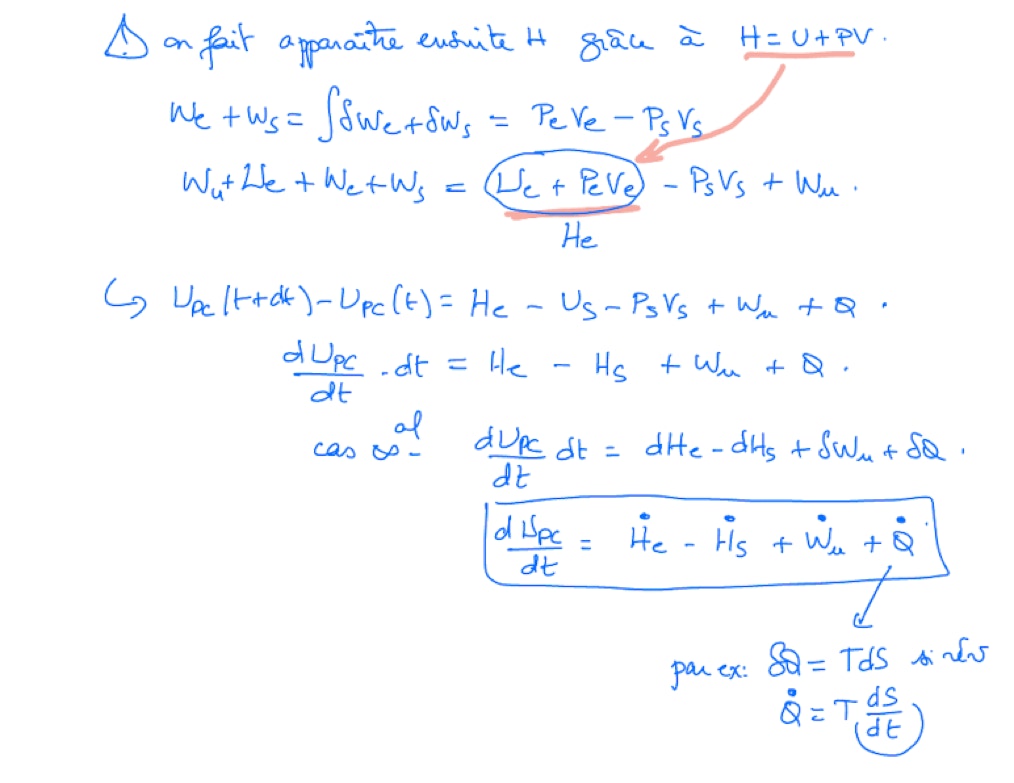 ⚠ on fait apparaître ensuite H grâce à H = U + PV.
We + Ws = ∫δWe + δWs = PeVe − PsVs
Wu + Ue + We + Ws = Ue + PeVe − PsVs + Wu.
He
↪ Upc(t+dt) − Upc(t) = He − Us − PsVs + Wu + Q.
dUpc/dt · dt = He − Hs + Wu + Q.
cas ∞al dUpc/dt dt = dHe − dHs + δWu + δQ.
dUpc/dt = Ḣe − Ḣs + Ẇu + Q̇
par ex: δQ = TdS si rév
Q̇ = T dS/dt